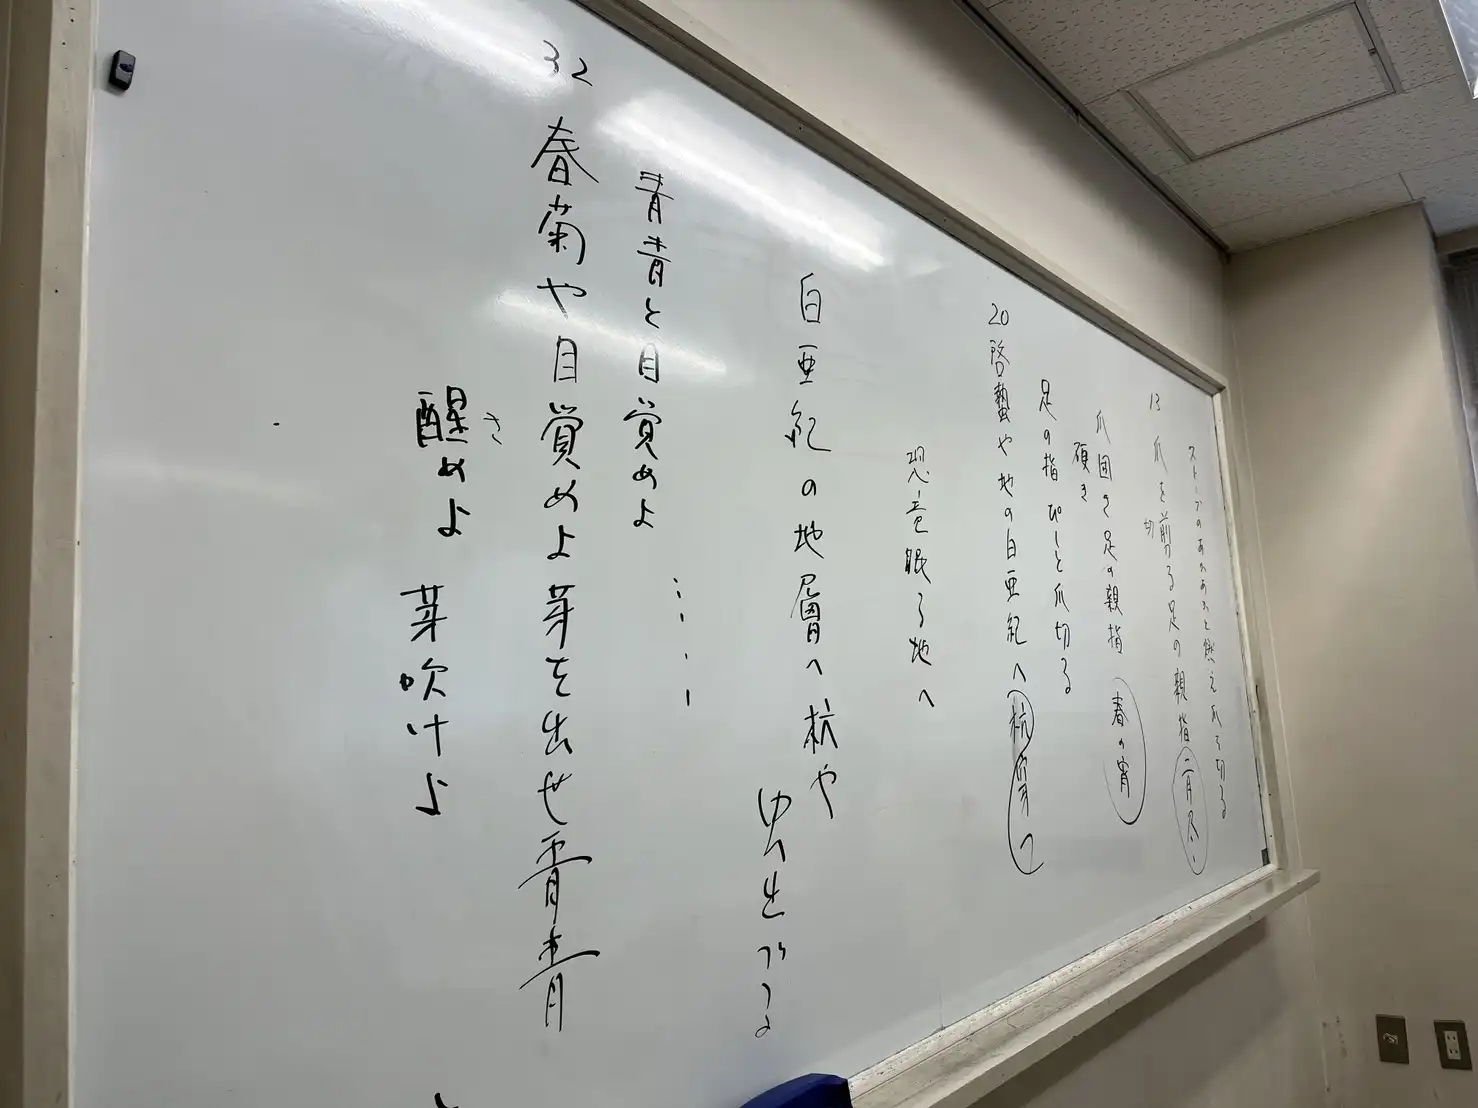 ストーブのあかあかと燃え爪を切る
13 爪を剪る足の親指二月尽
切
爪固き足の親指 春の宵
硬き
足の指ぴしと爪切る
20 啓蟄や地の白亜紀へ杭
恐竜眠る地へ
白亜紀の地層へ杭や
青青と目覚めよ
32 春菊や目覚めよ芽を出せ青青
さ
醒めよ 芽吹けよ